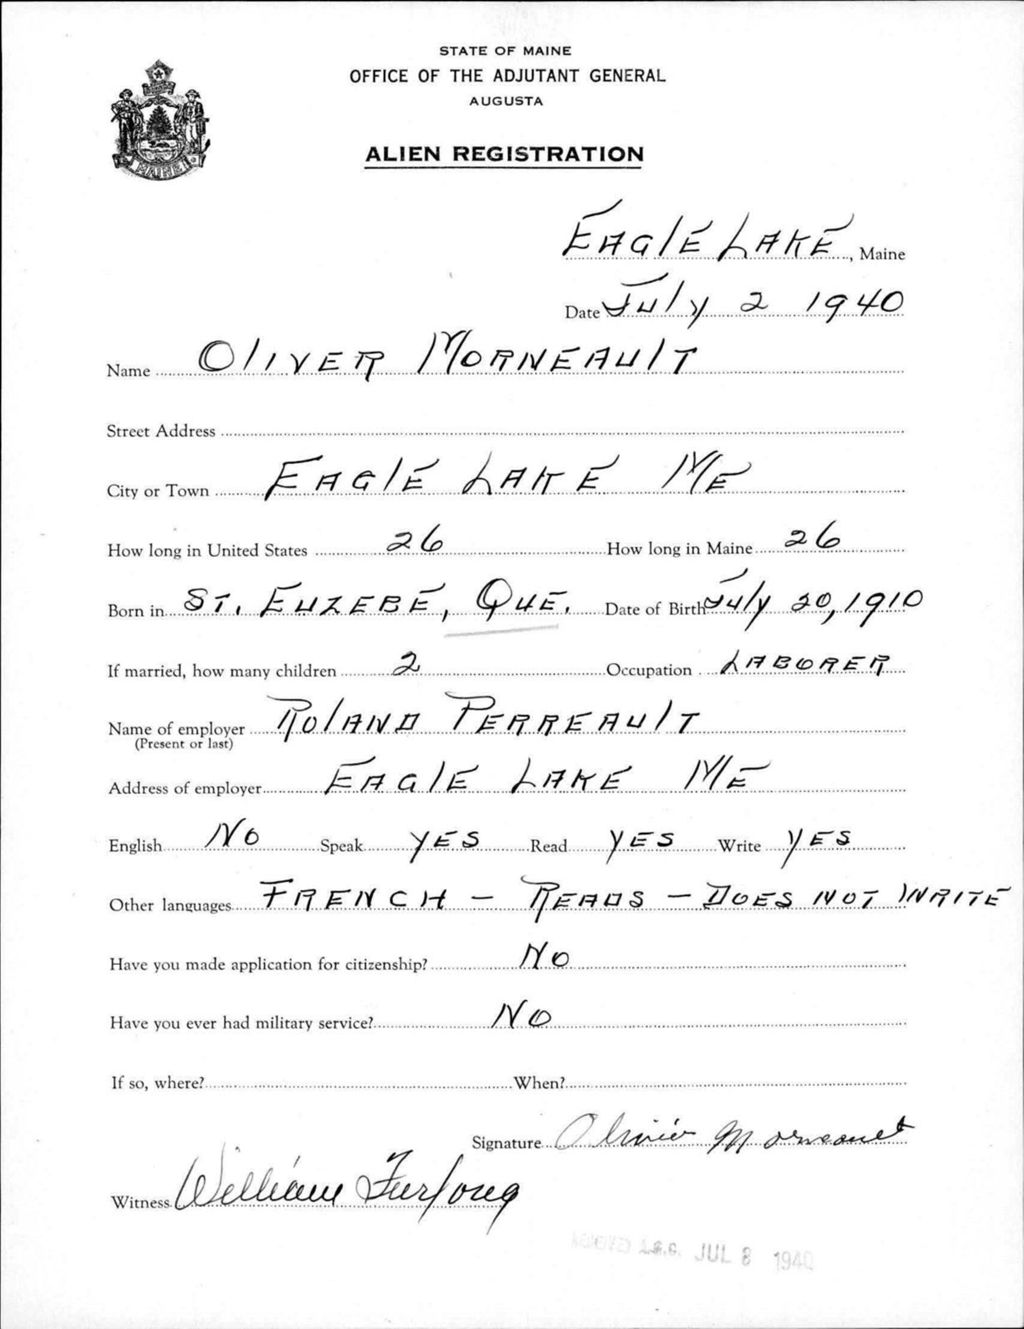 STATE OF MAINE
OFFICE OF THE ADJUTANT GENERAL
AUGUSTA
ALIEN REGISTRATION
MAINE
EAGlE LAKE, Maine
Date July 2 1940
Name OlIVER MORNEAUlT
Street Address
City or Town EAGlE LAKE ME
How long in United States 26 How long in Maine 26
Born in ST. EUZEBE, QUE. Date of Birth July 20, 1910
If married, how many children 2 Occupation LABORER
Name of employer ROlAND PERREAUlT
(Present or last)
Address of employer EAGlE LAKE ME
English No Speak YES Read YES Write YES
Other languages FRENCH - READS - DOES NOT WRITE
Have you made application for citizenship? No
Have you ever had military service? No
If so, where? When?
Signature Olivier Morneault
Witness William Furlong
A.G.O. JUL 8 1940